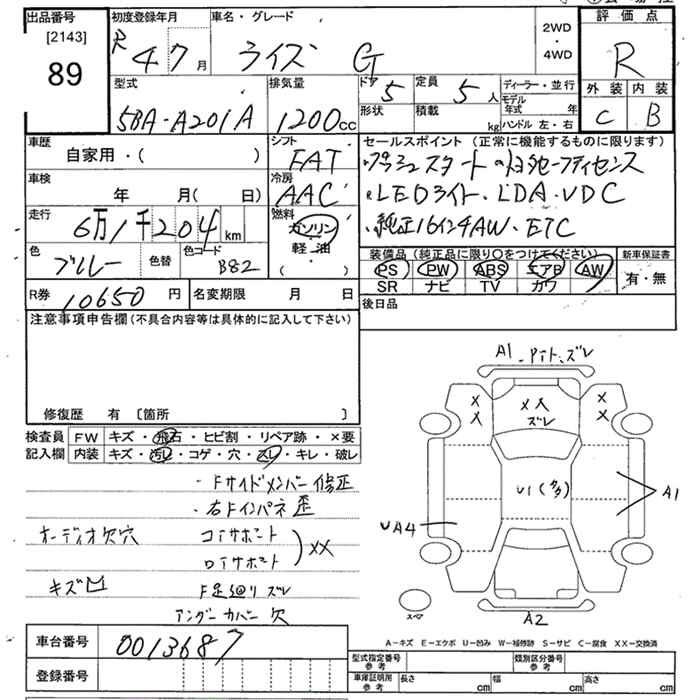 出品番号 初度登録年月 車名・グレード 評価点
[2143]
89
R 4 7 月 ライズ G 2WD・4WD R
型式 排気量 ドア 5 定員 5 人 ディーラー・並行 外装 内装
5BA-A201A 1200cc 形状 積載 kg モデル年式 年 C B
ハンドル 左・右
車歴 シフト セールスポイント (正常に機能するものに限ります)
自家用・( ) FAT ・プッシュスタート
車検 冷房
年 月(日) AAC ・LEDライト・LDA・VDC
走行 燃料 ・純正16インチAW・ETC
6万1千204km ガソリン
軽油
・( )
色 色替 色コード 装備品 (純正品に限り〇をつけてください) 新車保証書
ブルー B82 PS PW ABS エアB AW 有・無
SR ナビ TV カワ
R券 10650 円 名変期限 月 日 後日品
注意事項申告欄(不具合内容等は具体的に記入して下さい)
修復歴 有 [箇所 ]
A1 ズレ
×× ×× ××
ズレ
U1 A1
UA4
スペア
A2
検査員 FW キズ・飛石・ヒビ割・リペア跡・×要
記入欄 内装 キズ・汚レ・コゲ・穴・スレ・キレ・破レ
・Fサイドメンバー修正
・右Fインパネ歪
オーディオ欠穴 コアサポート
ロアサポート ) XX
キズ ズレ
アンダーカバー欠
A-キズ E-エクボ U-凹み W-補修跡 S-サビ C-腐食 XX-交換済
車台番号 0013687 型式指定番号 参考 類別区分番号 参考
登録番号 車庫証明用 参考 長さ cm 幅 cm 高さ cm